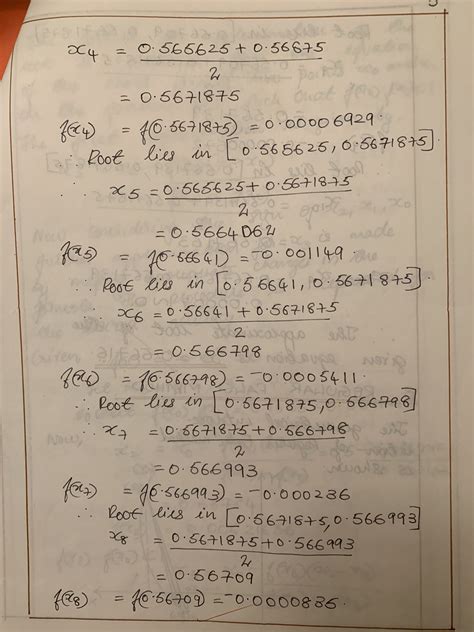 5
x4 = 0.565625 + 0.56875
2
= 0.5671875
f(x4) = f(0.5671875) = 0.00006929.
∴ Root lies in [0.565625, 0.5671875].
∴ x5 = 0.565625 + 0.5671875
2
= 0.5664062
f(x5) = f(0.56641) = -0.001149.
∴ Root lies in [0.56641, 0.5671875].
∴ x6 = 0.56641 + 0.5671875
2
= 0.566798
f(x6) = f(0.566798) = -0.0005411.
∴ Root lies in [0.5671875, 0.566798]
∴ x7 = 0.5671875 + 0.566798
2
= 0.566993
f(x7) = f(0.566993) = -0.000236
∴ Root lies in [0.5671875, 0.566993]
x8 = 0.5671875 + 0.566993
2
= 0.56709
f(x8) = f(0.56709) = -0.0000836.